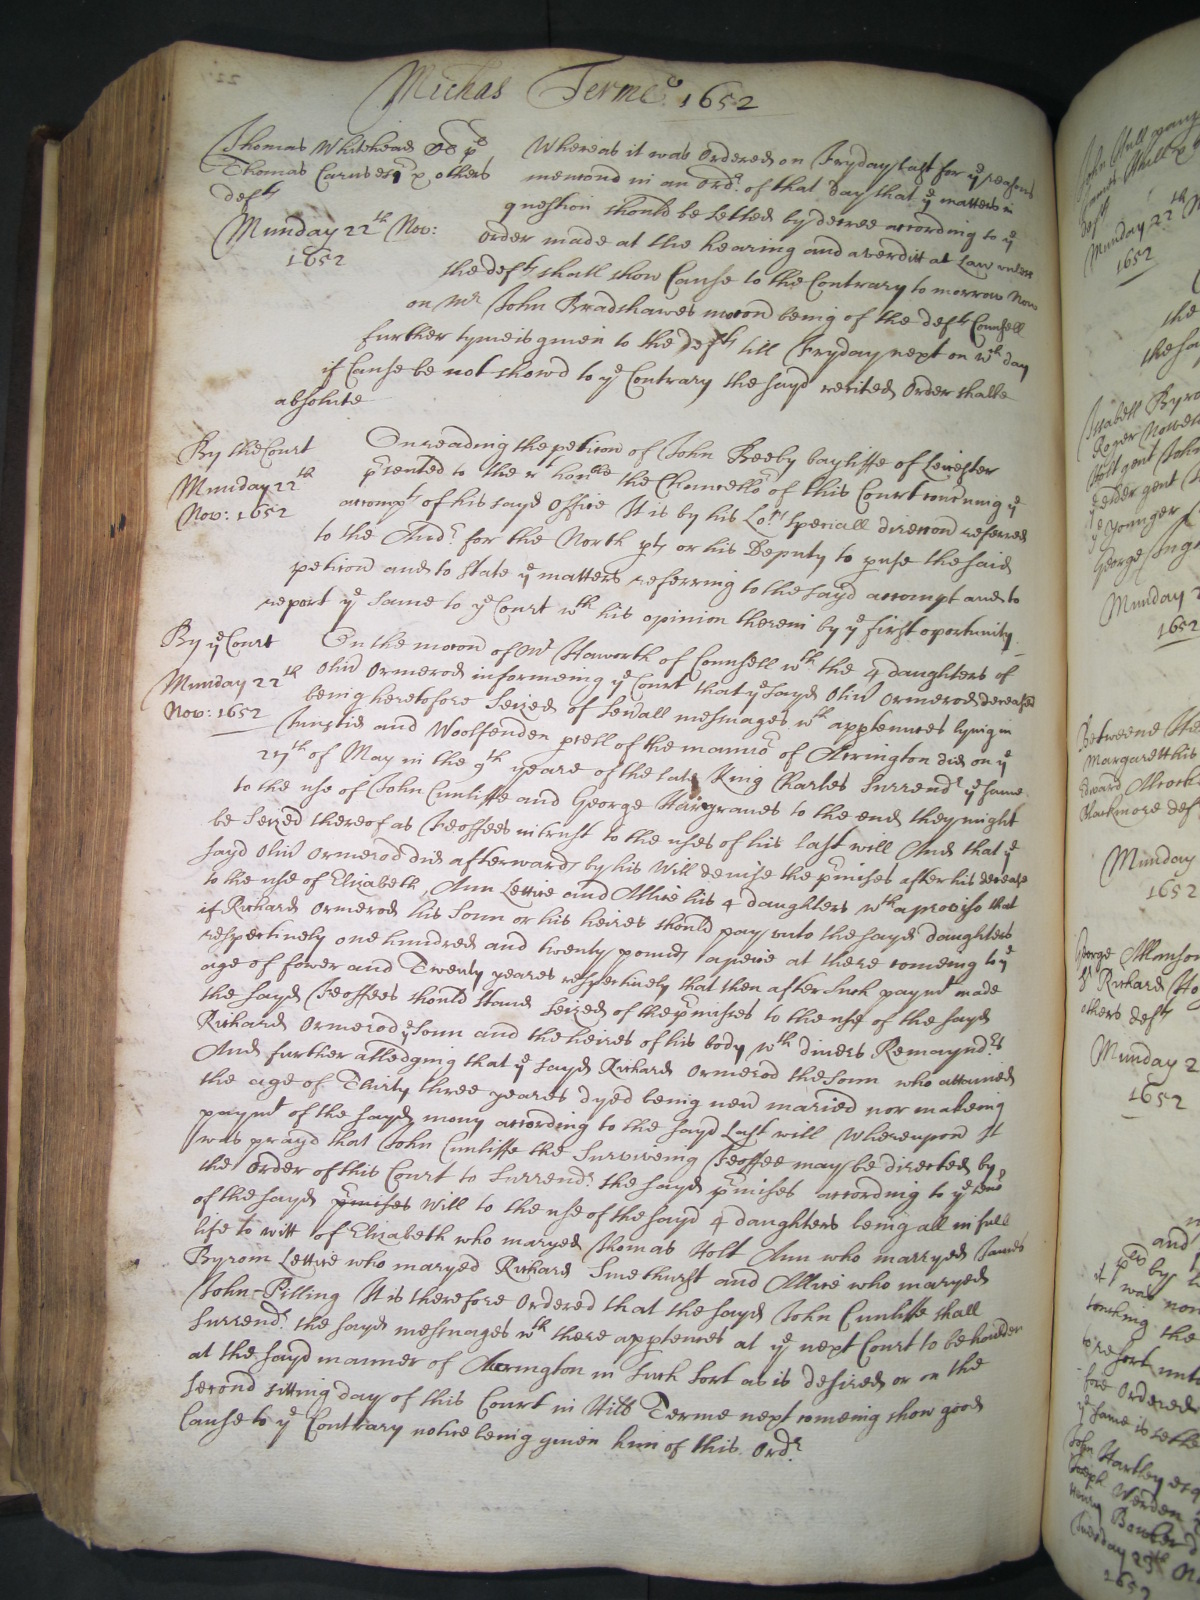 Michas Terme 1652
Thomas Whitehead
Thomas Carus esq & others
defts
Munday 22th Nov:
1652
Whereas it was Ordered on Fryday last for ye reasons
menconed in an Ordr. of that day that ye matters in
question should be setled by decree according to ye
order made at the hearing and a verdict at Law unlesse
the defts shall show Cause to the Contrary to morrow Now
on Mr John Bradshawes mocon being of the defts Counsell
further tyme is given to the defts till Fryday next on wch day
if Cause be not showd to ye Contrary the sayd recited Order shalbe
absolute
By the Court
Munday 22th
Nov: 1652
On reading the peticon of John Beeby bayliffe of Leicester
prsented to the rt honble the Chancellor of this Court concerning ye
accompt of his sayd Office It is by his Lopps speciall direccon referred
to the Audr. for the North pts or his Deputy to pruse the said
peticon and to state ye matters referring to the sayd accompt and to
report ye same to ye Court wth his opinion therein by ye first oportunity
By ye Court
Munday 22th
Nov: 1652
On the mocon of Mr Haworth of Counsell wth the 4 daughters of
Olivr Ormerod informeing ye Court that ye sayd Olivr Ormerod deceased
being heretofore Seized of sevall messuages wth apptennces lying in
and Woolfenden prcell of the mannor of Accrington did on ye
27th of May in the 9th yeare of the late King Charles Surrendr ye same
to the use of John Cunliffe and George Hargraves to the end they might
be Seized thereof as Feoffees in trust to the uses of his last will And that ye
sayd Olivr Ormerod did afterwards by his Will devise the prmises after his decease
to the use of Elizabeth, Ann Lettice and Allice his 4 daughters wth a proviso that
if Richard Ormerod his Sonn or his heires should pay unto the sayd daughters
respectively one hundred and twenty pounds apeice at there comeing to ye
age of fower and Twenty yeares respectively that then after such paymt made
the sayd Feoffees should stand Seized of the prmises to the use of the sayd
Richard Ormerod ye sonn and the heires of his body wth divers Remayndrs
And further alledging that ye sayd Richard Ormerod the sonn who attained
the age of Thirty three yeares dyed being nevr maried nor makeing
paymt of the sayd mony according to the sayd Last will Whereupon It
was prayd that John Cunliffe the Surviveing Feoffee may be directed by
the Order of this Court to Surrendr. the sayd prmises according to ye tenor
of the sayd prmises Will to the use of the sayd 4 daughters being all in full
life to witt of Elizabeth who maryed Thomas Holt Ann who marryed James
Byrom Lettice who maryed Richard Smethurst and Allice who maryed
John Pilling It is therefore Ordered that the sayd John Cunliffe shall
Surrendr. the sayd messuages wth there apptennces at ye next Court to be houlden
at the sayd mannor of Accrington in such sort as is desired or on the
second sitting day of this Court in Hill Terme next comeing show good
Cause to ye Contrary notice being given him of this Ordr.
Munday 22th
1652
Isabell Byro
Roger Nowell
Holt gent John
George
Munday 2
1652
Betweene
Margarett his
Edward
Blackmore def
Munday
1652
George
Richard Ho
others defts
Munday 2
1652
and
by
was
touching the
resort unto
fore Ordered
ye same is
John Hartley esq
Joseph Werden
Henry
Tuesday 23th No
1652